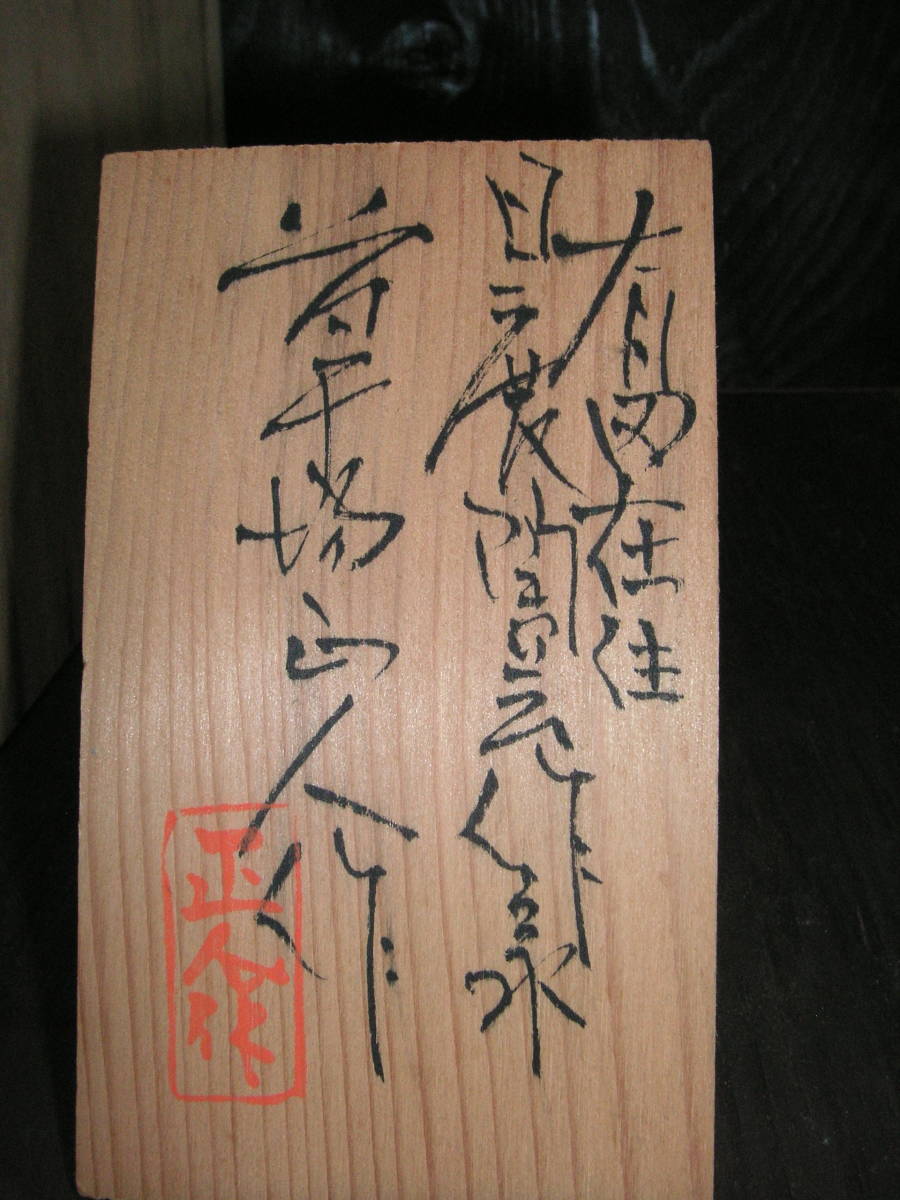 有田在住
日展陶藝作家
草場正人作
正人作